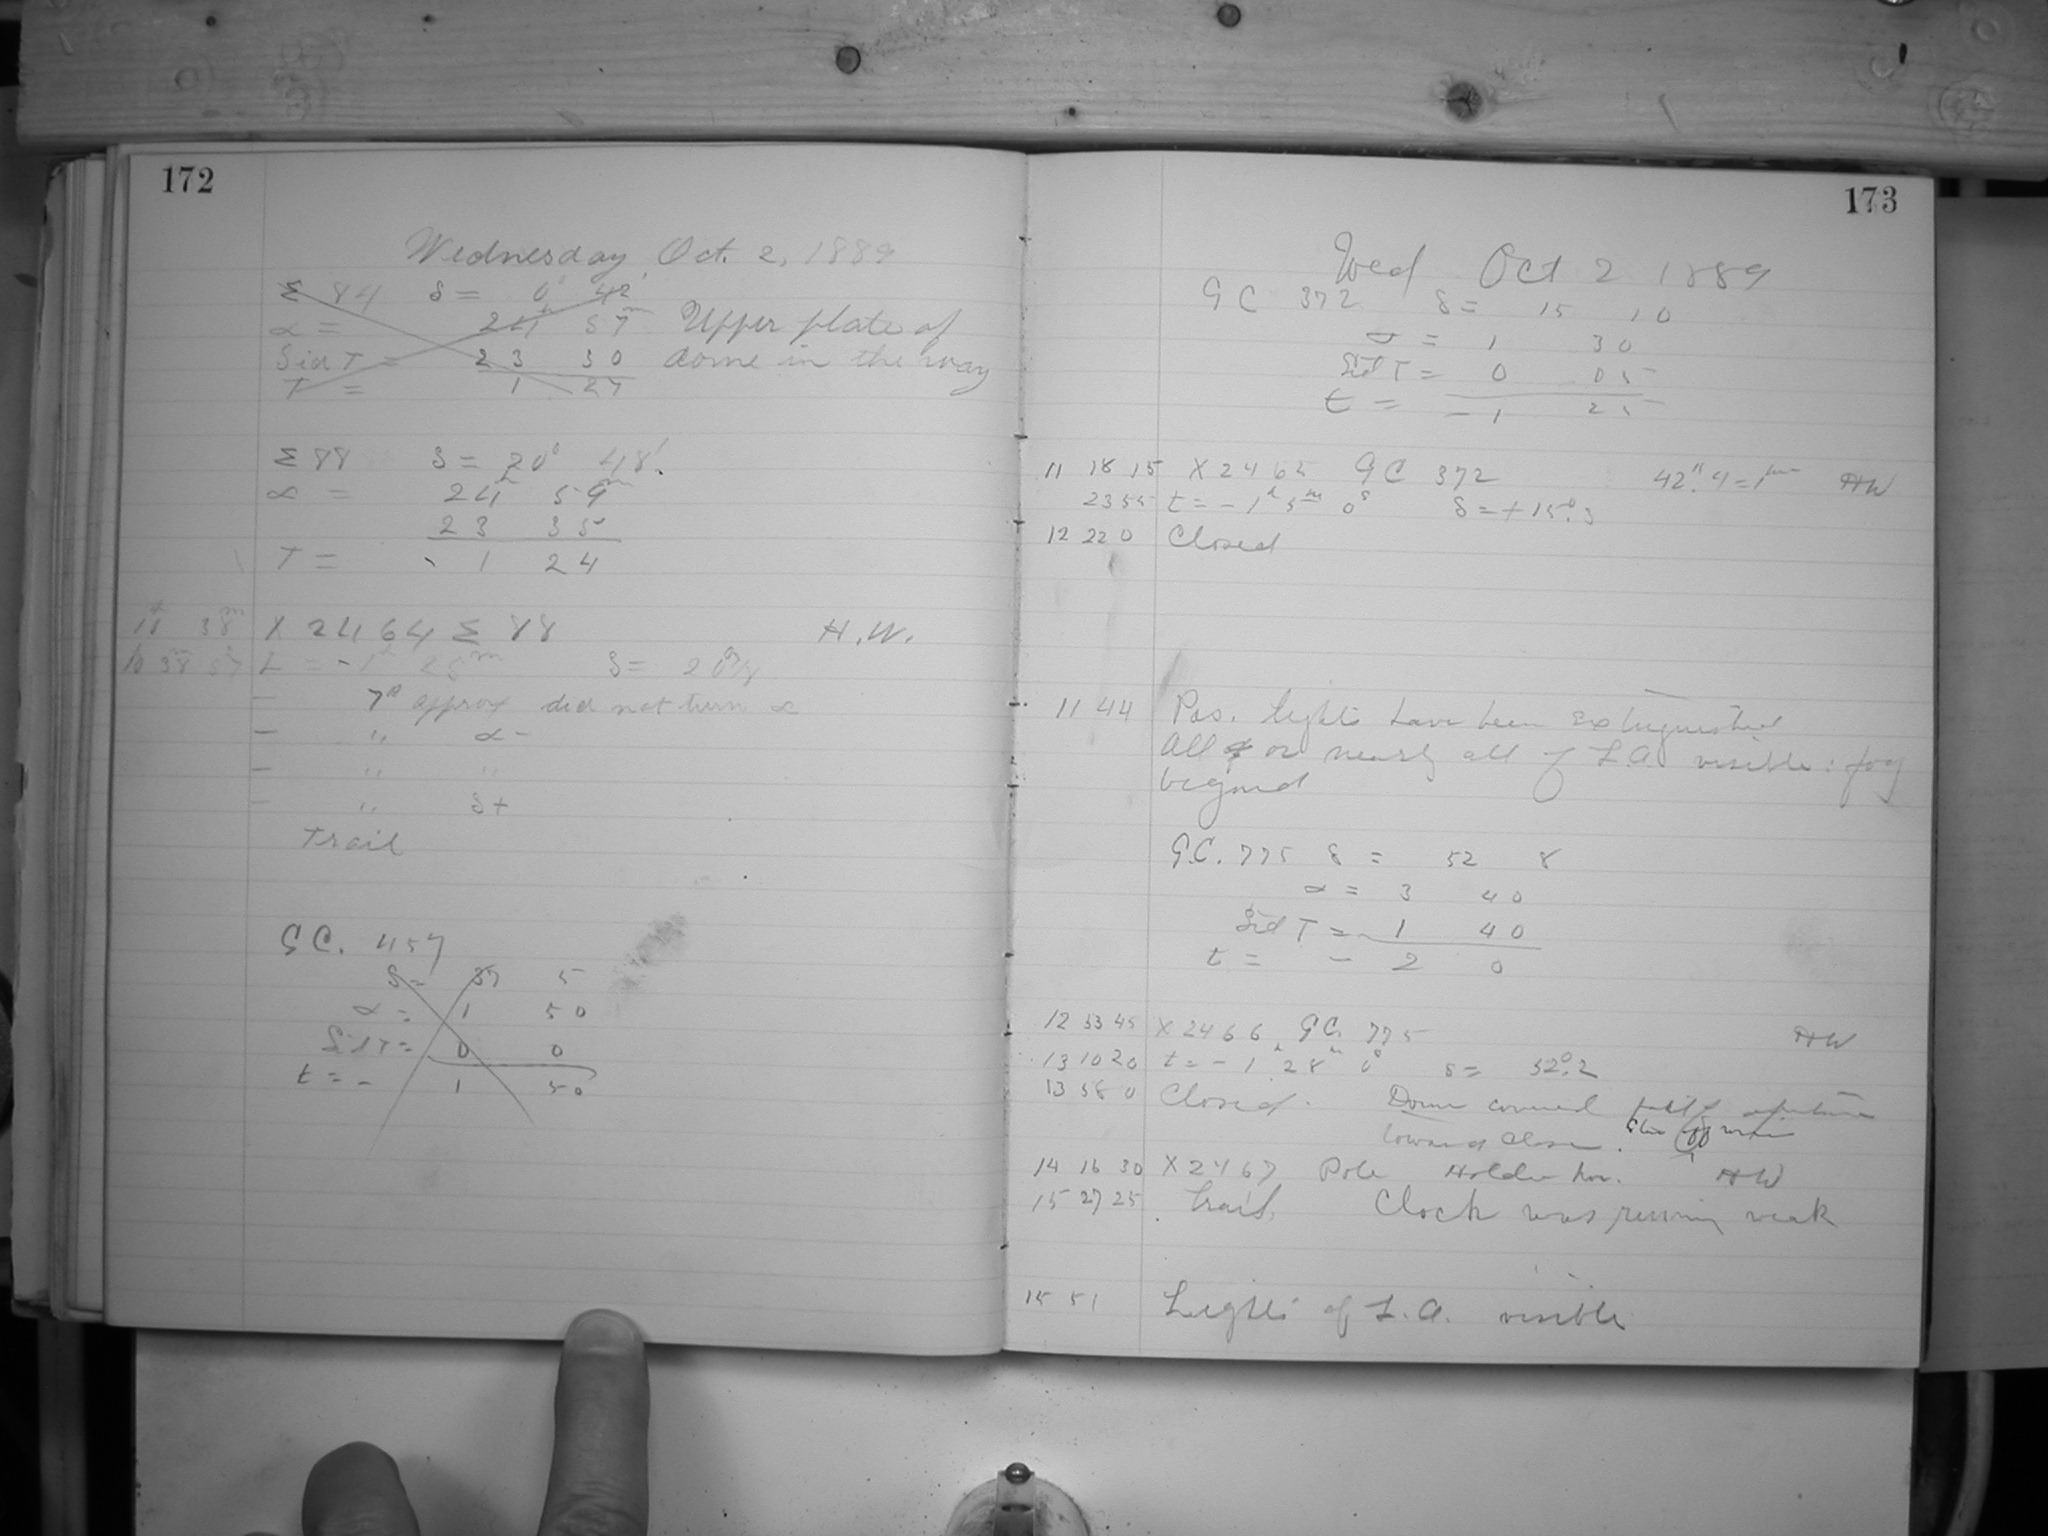 172
Wednesday, Oct. 2, 1889
Σ 84 δ = 0° 42'
α = 24h 57m Upper plate of
Sid T = 23 30 dome in the way
T = 1 27
Σ 88 δ = 20° 48'.
α = 24h 59m
23 35
T = - 1 24
38m X 2464 Σ 88 H.W.
10 38 57 t = -1h 25m δ =
- 7s approx did not turn α
- " α -
- " "
- " δ +
Trail
G C. 457
δ = 37 5
α = 1 50
Sid T = 0 0
t = - 1 50
173
Wed Oct 2 1889
G C 372 δ = 15 10
α = 1 30
Sid T = 0 05
t = - 1 25
11 18 15 X 2465 G C 372 42".4 = 1mm HW
23 55 t = -1h 5m 0s δ = +15°.3
12 22 0 Closed
11 44 Pas. lights have been extinguished
All or nearly all of L.A. visible: fog
beyond
G.C. 775 δ = 52 8
α = 3 40
Sid T = 1 40
t = - 2 0
12 53 45 X 2466 G.C. 775 HW
13 10 20 t = -1h 28m 0s δ = 52°.2
13 58 0 Closed. Dome covered aperture
toward close.
14 16 30 X 2467 Pole Holder hor. HW
15 27 25 Trail. Clock was running weak
15 51 Lights of L.A. visible